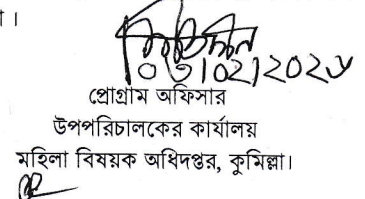 ।
০৩/০২/২০২৬
প্রোগ্রাম অফিসার
উপপরিচালকের কার্যালয়
মহিলা বিষয়ক অধিদপ্তর, কুমিল্লা।